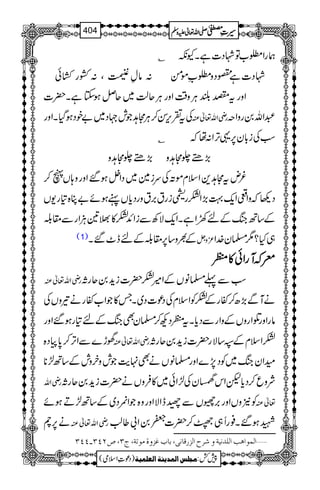 سیرتِ مصطفیٰ صلی اللہ تعالیٰ علیہ وسلم 404
ہمارا مطلوب تو شہادت ہے۔ کیونکہ ؎
شہادت ہے مقصود و مطلوبِ مومن نہ مالِ غنیمت ، نہ کشور کشائی
اور یہ بلند مقصد ہر وقت اور ہر حال میں حاصل ہو سکتا ہے۔ حضرت
عبداللہ بن رواحہ رضی اللہ تعالیٰ عنہ کی یہ تقریر سن کر ہر مجاہد جوش جہاد میں بے خود ہو گیا۔ اور
سب کی زبان پر یہی ترانہ تھا کہ ؎
بڑھتے چلو مجاہدو بڑھتے چلو مجاہدو
غرض یہ مجاہدین اسلام موتہ کی سرزمین میں داخل ہو گئے اور وہاں پہنچ کر
دیکھا کہ واقعی ایک بہت بڑا لشکر ریشمی زرق برق وردیاں پہنے ہوئے بے پناہ تیاریوں
کے ساتھ جنگ کے لئے کھڑا ہے۔ ایک لاکھ سے زائد لشکر کا بھلا تین ہزار سے مقابلہ
ہی کیا؟ مگر مسلمان خدا عزوجل کے بھروسہ پر مقابلہ کے لئے ڈٹ گئے۔ (۱)
معرکہ آرائی کا منظر
سب سے پہلے مسلمانوں کے امیر لشکر حضرت زید بن حارثہ رضی اللہ تعالیٰ عنہ
نے آگے بڑھ کر کفار کے لشکر کو اسلام کی دعوت دی۔ جس کا جواب کفار نے تیروں کی
مار اور تلواروں کے وار سے دیا۔ یہ منظر دیکھ کر مسلمان بھی جنگ کے لئے تیار ہو گئے اور
لشکر اسلام کے سپہ سالار حضرت زید بن حارثہ رضی اللہ تعالیٰ عنہ گھوڑے سے اتر کر پا پیادہ
میدان جنگ میں کود پڑے اور مسلمانوں نے بھی نہایت جوش و خروش کے ساتھ لڑنا
شروع کر دیا لیکن اس گھمسان کی لڑائی میں کافروں نے حضرت زید بن حارثہ رضی اللہ
تعالیٰ عنہ کو نیزوں اور برچھیوں سے چھید ڈالا اور وہ جوانمردی کے ساتھ لڑتے ہوئے
شہید ہو گئے۔ فوراً ہی جھپٹ کر حضرت جعفر بن ابی طالب رضی اللہ تعالیٰ عنہ نے پرچم
المواهب اللدنية و شرح الزرقانی، باب غزوة موتة، ج۳، ص ۳۴۲۔۳۴۴
پیش کش: مجلس المدینة العلمیة (دعوتِ اسلامی)